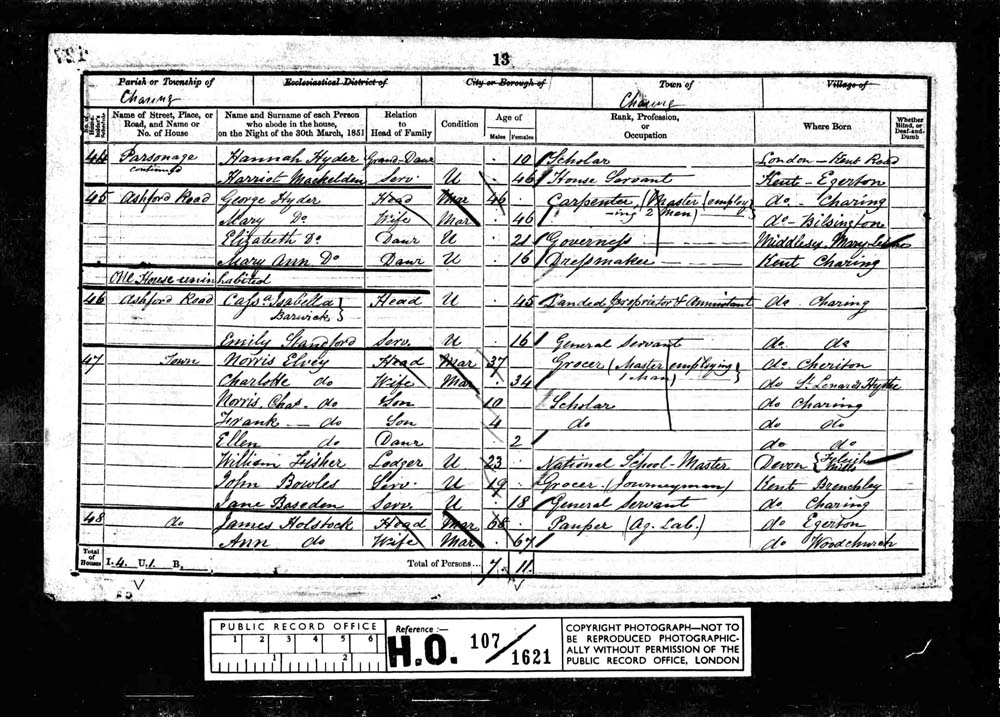 13
Parish or Township of Ecclesiastical District of City or Borough of Town of Village of
Charing Charing
No. of House Name of Street, Place, or Road, and Name or No. of House Name and Surname of each Person who abode in the house, on the Night of the 30th March, 1851 Relation to Head of Family Condition Age of Males Females Rank, Profession, or Occupation Where Born Whether Blind, or Deaf-and-Dumb
44 Parsonage continued Hannah Hyder Grand-Daur 10 Scholar London - Kent Road
Harriot Mackelden Serv. U 46 House Servant Kent - Egerton
45 Ashford Road George Hyder Head Mar 46 Carpenter (Master employing 2 men) do - Charing
Mary Do Wife Mar 46 do - Bilsington
Elizabeth Do Daur U 21 Governess Middlesx
Mary Ann Do Daur U 16 Dressmaker Kent Charing
One House uninhabited
46 Ashford Road Cassa Isabella Barwick Head U 45 Landed proprietor & Annuitant do Charing
Emily Standford Serv. U 16 General Servant do do
47 Town Norris Elvey Head Mar 37 Grocer (Master employing 1 Man) do Cheriton
Charlotte do Wife Mar 34 do St. Lenards Hythe
Norris Chas. do Son 10 Scholar do Charing
Frank - do Son 4 do do do
Ellen do Daur 2 do do
William Fisher Lodger U 23 National School-Master Devon
John Bowles Serv. U 19 Grocer (Journeyman) Kent Brenchley
Jane Baseden Serv. U 18 General Servant do Charing
48 do James Holstock Head Mar 68 Pauper (Ag. Lab.) do Egerton
Ann do Wife Mar 67 do Woodchurch
Total of Houses I. 4. U. 1. B. Total of Persons... 7 11
PUBLIC RECORD OFFICE
1 2 3 4 5 6
1 2
Reference :-
H.O. 107/1621
COPYRIGHT PHOTOGRAPH—NOT TO
BE REPRODUCED PHOTOGRAPHIC-
ALLY WITHOUT PERMISSION OF THE
PUBLIC RECORD OFFICE, LONDON